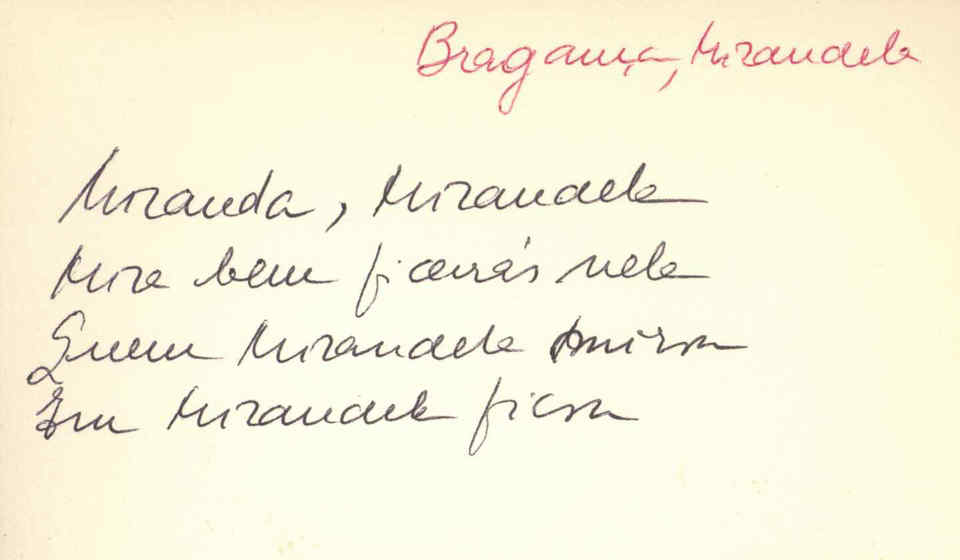 Bragança, Mirandela
Miranda, Mirandela
Mira bem ficarás nela
Quem Mirandela mira
Em Mirandela fica